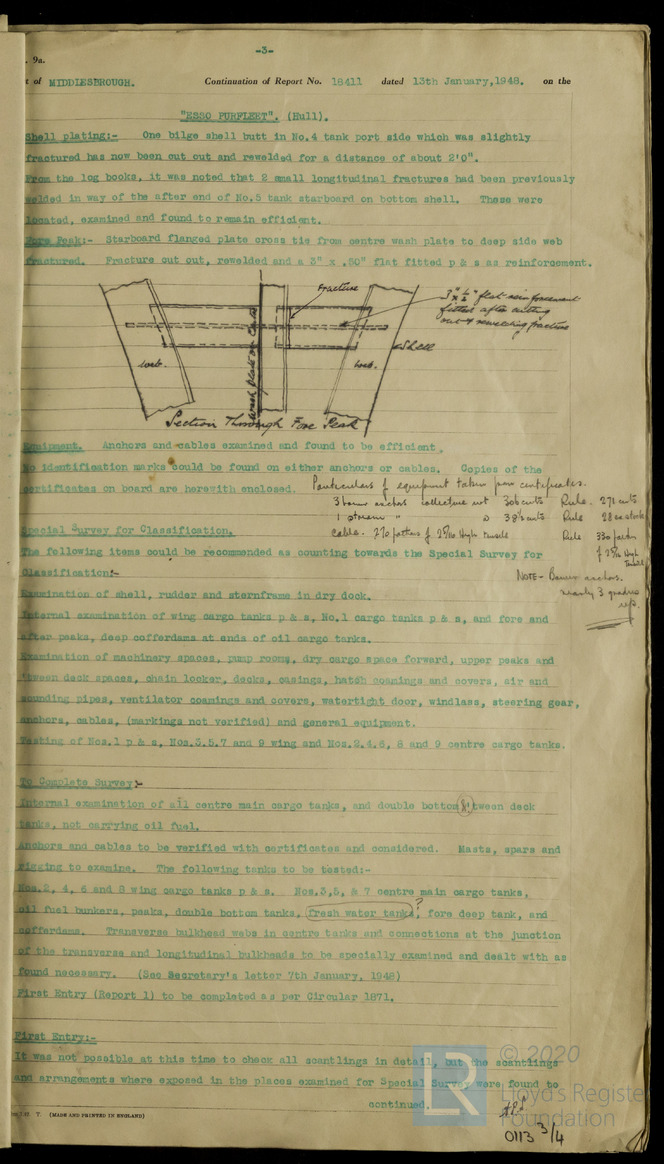 -3-
. 9a.
t of MIDDLESBROUGH. Continuation of Report No. 18411 dated 13th January, 1948. on the
"ESSO PURFLEET". (Hull).
Shell plating:- One bilge shell butt in No.4 tank port side which was slightly
fractured has now been cut out and rewelded for a distance of about 2'0".
From the log books, it was noted that 2 small longitudinal fractures had been previously
welded in way of the after end of No.5 tank starboard on bottom shell. These were
located, examined and found to remain efficient.
Fore Peak:- Starboard flanged plate cross tie from centre wash plate to deep side web
fractured. Fracture cut out, rewelded and a 3" x .50" flat fitted p & s as reinforcement.
Fracture
3" x ½" flat reinforcement
fitted after cutting
out & rewelding fracture
Shell
web.
Wash plate on Centre
web.
Section Through Fore Peak
Equipment. Anchors and cables examined and found to be efficient.
No identification marks could be found on either anchors or cables. Copies of the
certificates on board are herewith enclosed. Particulars of equipment taken from certificates.
3 bower anchors collective wt 306 cwts Rule. 271 cwts
1 stream " " 38½ cwts Rule 28 ex stock
Cable. 270 fathoms of 2 5/16 High Tensile Rule 330 fathoms
of 2 5/16 High
Tensile
Special Survey for Classification.
The following items could be recommended as counting towards the Special Survey for
Classification:-
NOTE - Bower anchors.
nearly 3 grades
up.
Examination of shell, rudder and sternframe in dry dock.
Internal examination of wing cargo tanks p & s, No.1 cargo tanks p & s, and fore and
after peaks, deep cofferdams at ends of oil cargo tanks.
Examination of machinery spaces, pump rooms, dry cargo space forward, upper peaks and
'tween deck spaces, chain locker, decks, casings, hatch coamings and covers, air and
sounding pipes, ventilator coamings and covers, watertight door, windlass, steering gear,
anchors, cables, (markings not verified) and general equipment.
Testing of Nos.1 p & s, Nos.3.5.7 and 9 wing and Nos.2.4.6, 8 and 9 centre cargo tanks.
To Complete Survey:-
Internal examination of all centre main cargo tanks, and double bottom & 'tween deck
tanks, not carrying oil fuel.
Anchors and cables to be verified with certificates and considered. Masts, spars and
rigging to examine. The following tanks to be tested:-
Nos.2, 4, 6 and 8 wing cargo tanks p & s. Nos.3,5, & 7 centre main cargo tanks,
oil fuel bunkers, peaks, double bottom tanks, fresh water tanks,? fore deep tank, and
cofferdams. Transverse bulkhead webs in centre tanks and connections at the junction
of the transverse and longitudinal bulkheads to be specially examined and dealt with as
found necessary. (See Secretary's letter 7th January, 1948)
First Entry (Report 1) to be completed as per Circular 1871.
First Entry:-
It was not possible at this time to check all scantlings in detail, but the scantlings
and arrangements where exposed in the places examined for Special Survey were found to
continued.
T. (MADE AND PRINTED IN ENGLAND)
LR
© 2020
Lloyd's Register
Foundation
0113 3/4